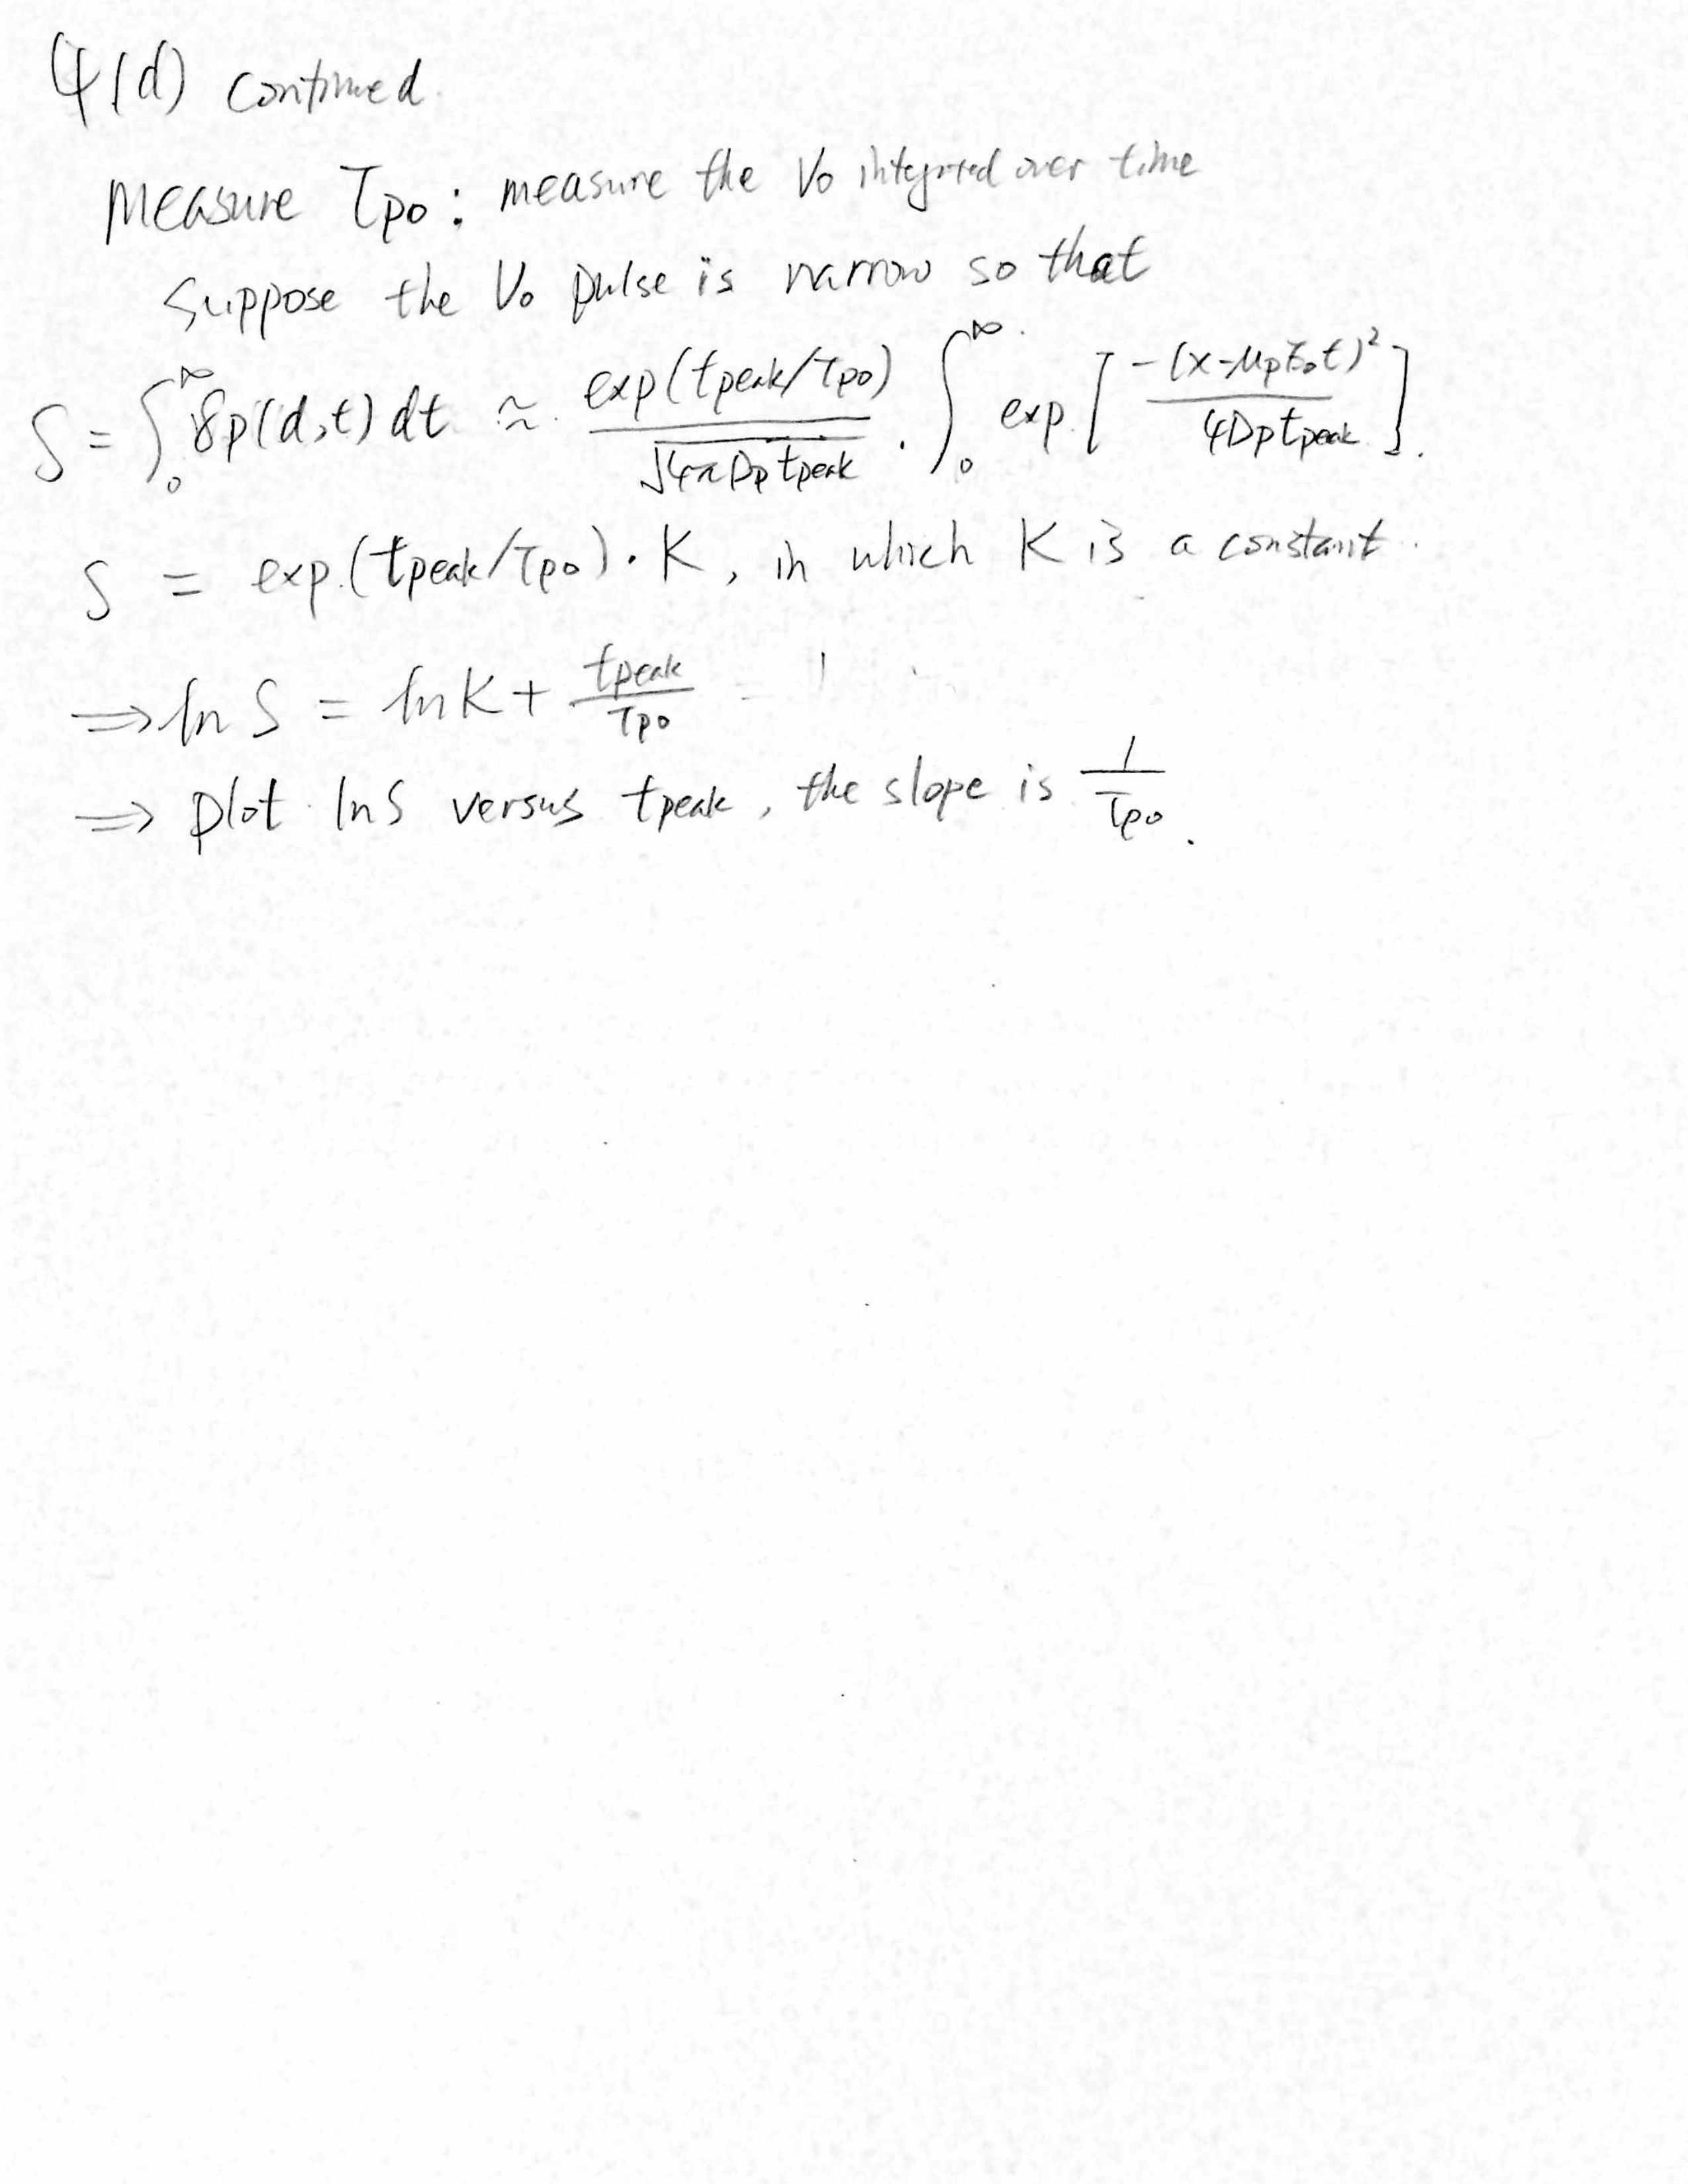 4(d) continued
Measure τpo: measure the Vo integrated over time
Suppose the Vo pulse is narrow so that
S = ∫₀^∞ δp(d,t) dt ≈ exp(tpeak/τpo) / √(4πDp tpeak) · ∫₀^∞ exp[ -(x-μpE₀t)² / 4Dptpeak ].
S = exp.(tpeak/τpo)·K, in which K is a constant.
⇒ ln S = ln K + tpeak/τpo
⇒ plot ln S versus tpeak, the slope is 1/τpo.